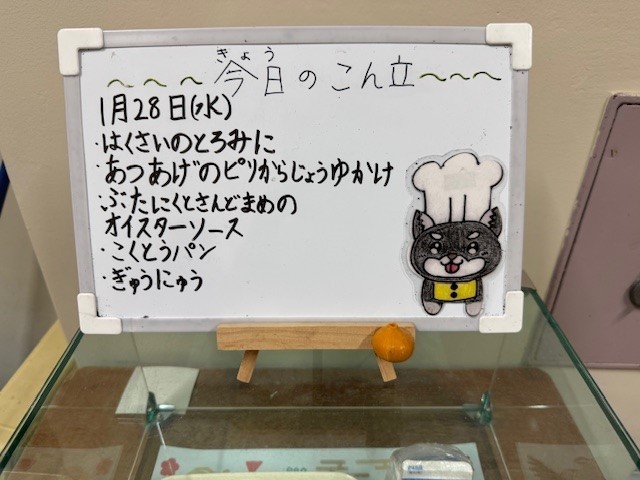 きょう
~~~今日のこん立~~~
1月28日(水)
・はくさいのとろみに
・あつあげのピリからじょうゆかけ
・ぶたにくとさんどまめの
オイスターソース
・こくとうパン
・ぎゅうにゅう